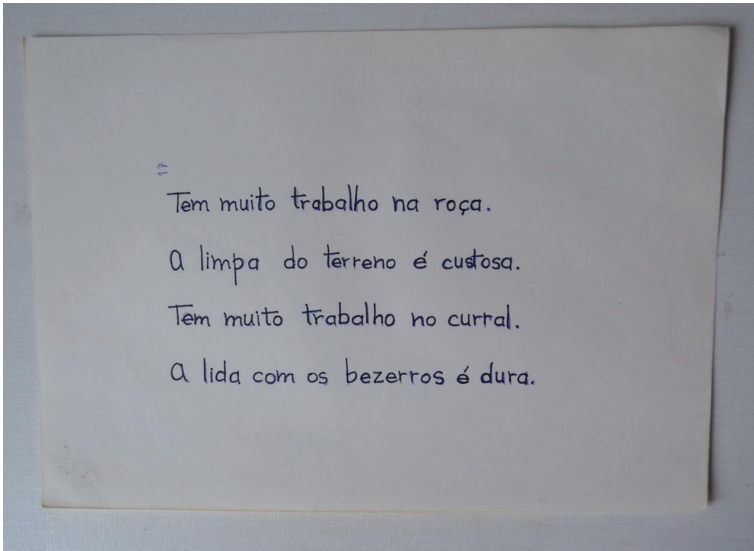 17
Tem muito trabalho na roça.
a limpa do terreno é custosa.
Tem muito trabalho no curral.
a lida com os bezerros é dura.